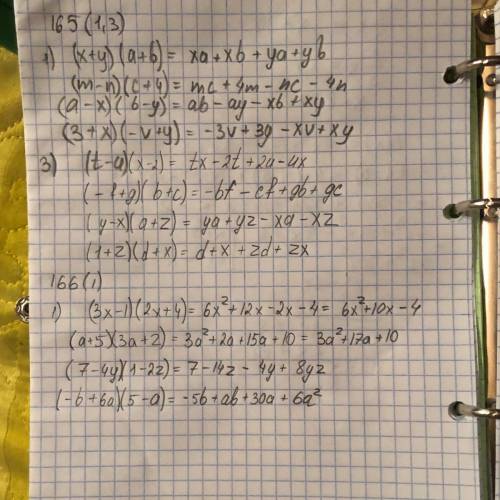 165 (1,3)
1) (x+y)(a+b) = xa + xb + ya + yb
(m-n)(c+4) = mc + 4m - nc - 4n
(a-x)(b-y) = ab - ay - xb + xy
(3+x)(-v+y) = -3v + 3y - xv + xy
3) (t-a)(x-2) = tx - 2t + 2a - ax
(-f+g)(b+c) = -bf - cf + gb + gc
(y-x)(a+z) = ya + yz - xa - xz
(1+z)(d+x) = d + x + zd + zx
166 (1)
1) (3x-1)(2x+4) = 6x² + 12x - 2x - 4 = 6x² + 10x - 4
(a+5)(3a+2) = 3a² + 2a + 15a + 10 = 3a² + 17a + 10
(7-4y)(1-2z) = 7 - 14z - 4y + 8yz
(-b+6a)(5-a) = -5b + ab + 30a + 6a²